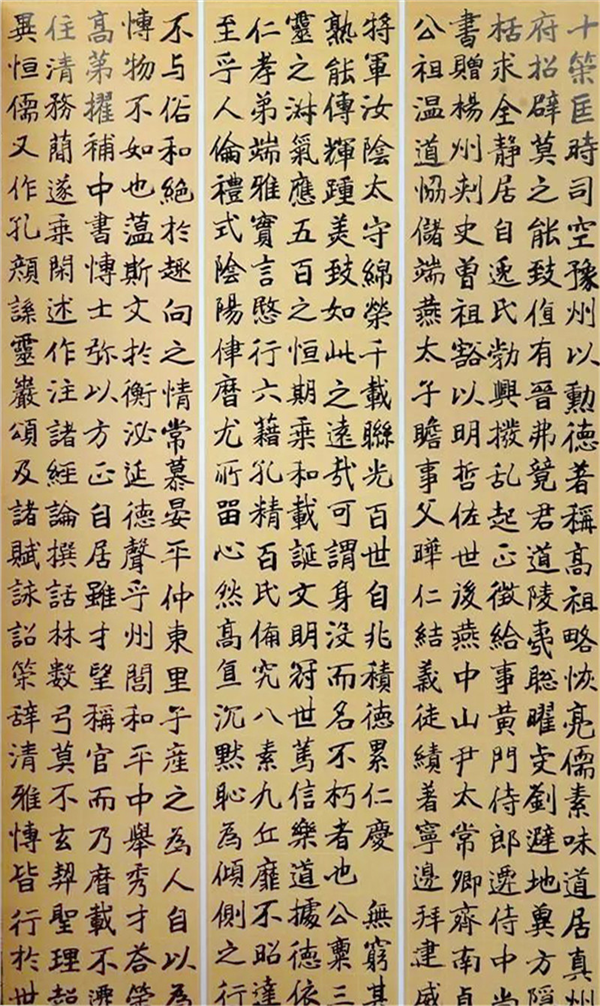 十策匡時司空豫州以勳德著稱高祖略恢亮儒素味道居真州
府招辟莫之能致值有晉弗競君道陵夷聡曜虔劉避地冀方隠
括求全静居自逸氏勃興撥乱起正徵給事黄門侍郎遷侍中尚
書贈楊州刾史曽祖豁以明哲佐世後燕中山尹太常卿齊南貞
公祖温道恊儲端燕太子瞻事父曄仁結義徒績著寧邊拜建威
將軍汝陰太守綿榮千載聨光百世自兆積德累仁慶 無窮其
熟能傳輝踵美致如此之遠哉可謂身没而名不朽者也公稟三
靈之淋氣應五百之恒期乗和載誕文明冠世篤信樂道據德依
仁孝弟端雅實言愍行六藉孔精百氏俻究八素九丘靡不昭達
至乎人倫禮式陰陽律曆尤所留心然高直沉黙恥為傾側之行
不与俗和絶於趣向之情常慕晏平仲東里子産之為人自以為
愽物不如也蕰斯文於衡泌延德聲乎州閭和平中舉秀才荅策
高苐擢補中書愽士弥以方正自居雖才望稱官而乃曆載不遷
住清務簡遂乗閑述作注諸經論撰話林數弓莫不玄契聖理超
異恒儒又作孔顔誄靈巖頌及諸賦詠詔策辭清雅愽皆行於世